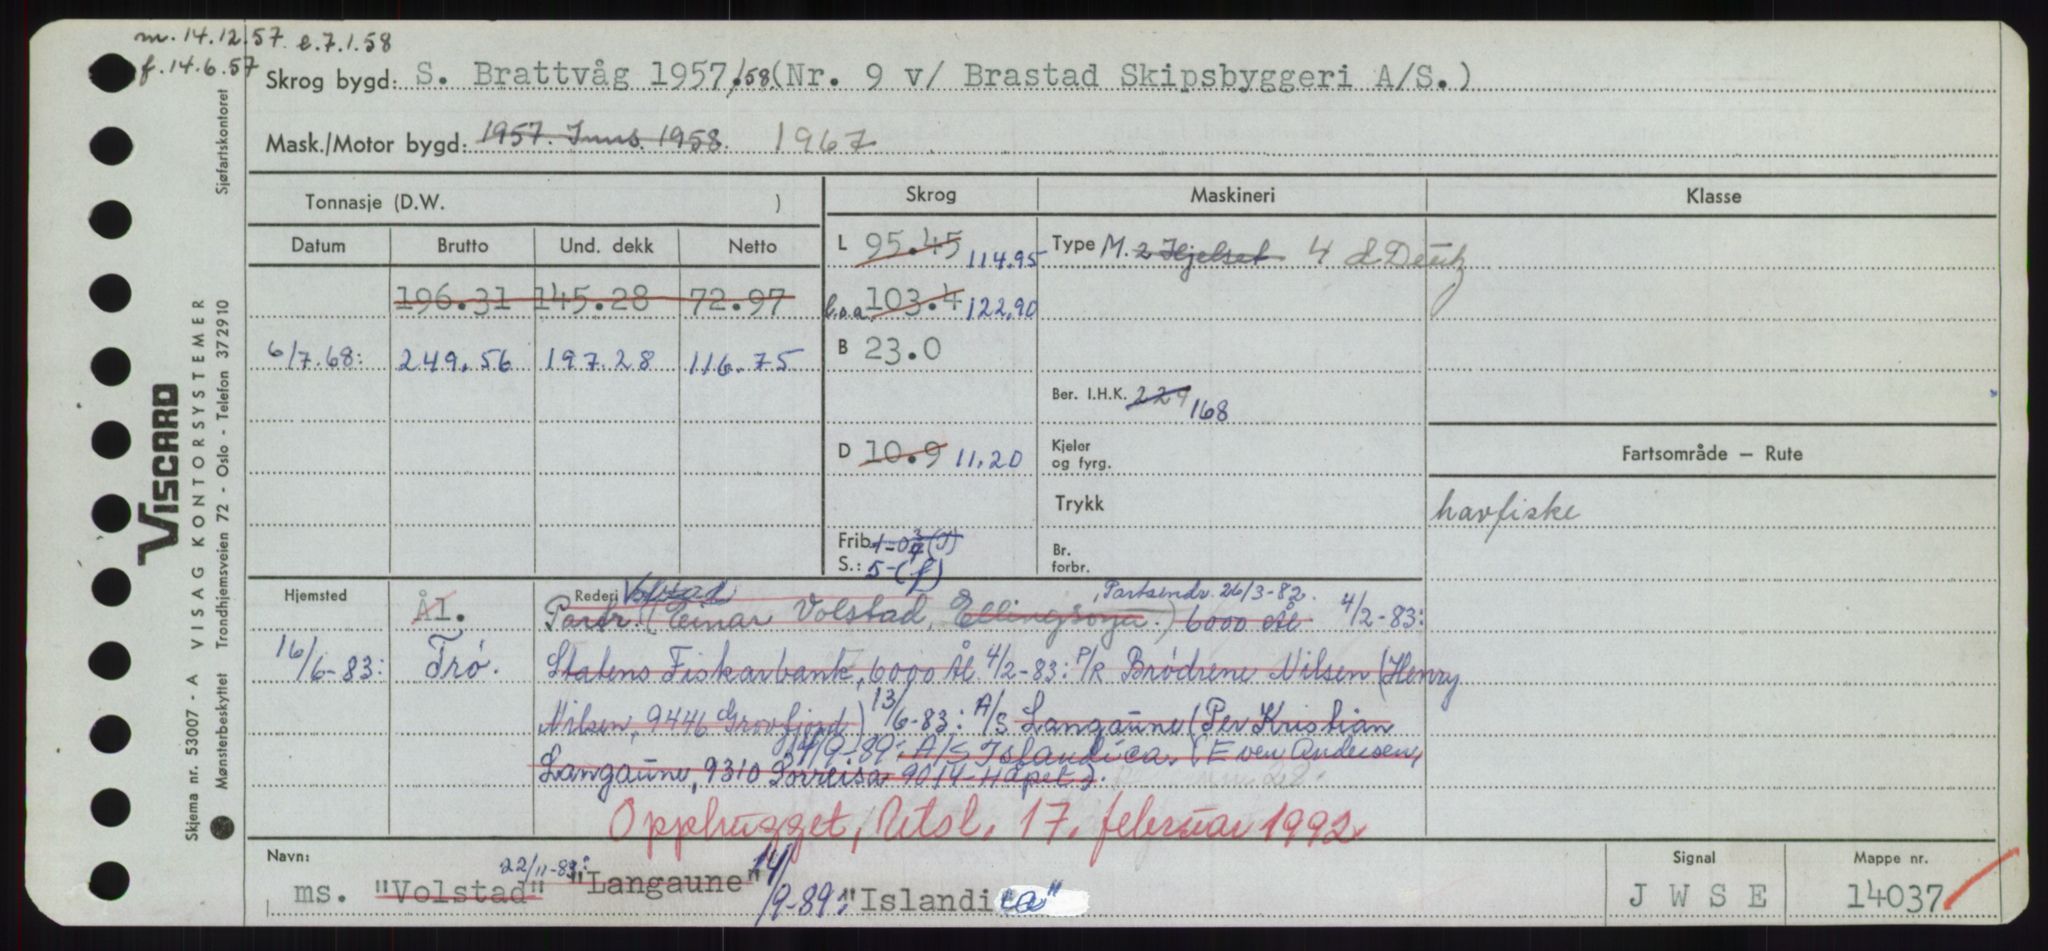 m. 14.12.57. e. 7.1.58
f. 14.6.57
Skrog bygd: S. Brattvåg 1957/58 (Nr. 9 v/ Brastad Skipsbyggeri A/S.)
Mask./Motor bygd: 1957. Inns. 1958. 1967
Tonnasje (D.W. )
Skrog
Maskineri
Klasse
Datum Brutto Und. dekk Netto
L 95.45 114.95
Type M. 2 Hjelset 4 Deutz
196.31 145.28 72.97
l.o.a. 103.4 122.90
6/7.68: 249.56 197.28 116.75
B 23.0
Ber. I.H.K. 229 168
D 10.9 11.20
Kjeler
og fyrg.
Fartsområde — Rute
Trykk
havfiske
Frib.
S.: 5-(f)
Br.
forbr.
Hjemsted
Rederi Volstad
Partsendr. 26/3-82.
Ål. Partr. (Einar Volstad, Ellingsøya.) 6000 Ål 4/2-83:
16/6-83: Trø. Statens Fiskarbank, 6000 Ål 4/2-83: P/R Brødrene Nilsen (Henry
Nilsen, 9446 Grovfjord) 13/6-83: A/S Langaune (Per Kristian
14/9-89: A/S Islandica. (Even Andersen,
Langaune, 9310 Sørreisa 9014 Håpet).
Opphugget, Utsl. 17. februar 1992.
Navn:
ms. "Volstad" 22/11-83: "Langaune" 14/9-89: "Islandica"
Signal
J W S E
Mappe nr.
14037
VISCARD
VISAG KONTORSYSTEMER
Skjema nr. 53007 - A
Mønsterbeskyttet Trondhjemsveien 72 - Oslo - Telefon 372910 Sjøfartskontoret